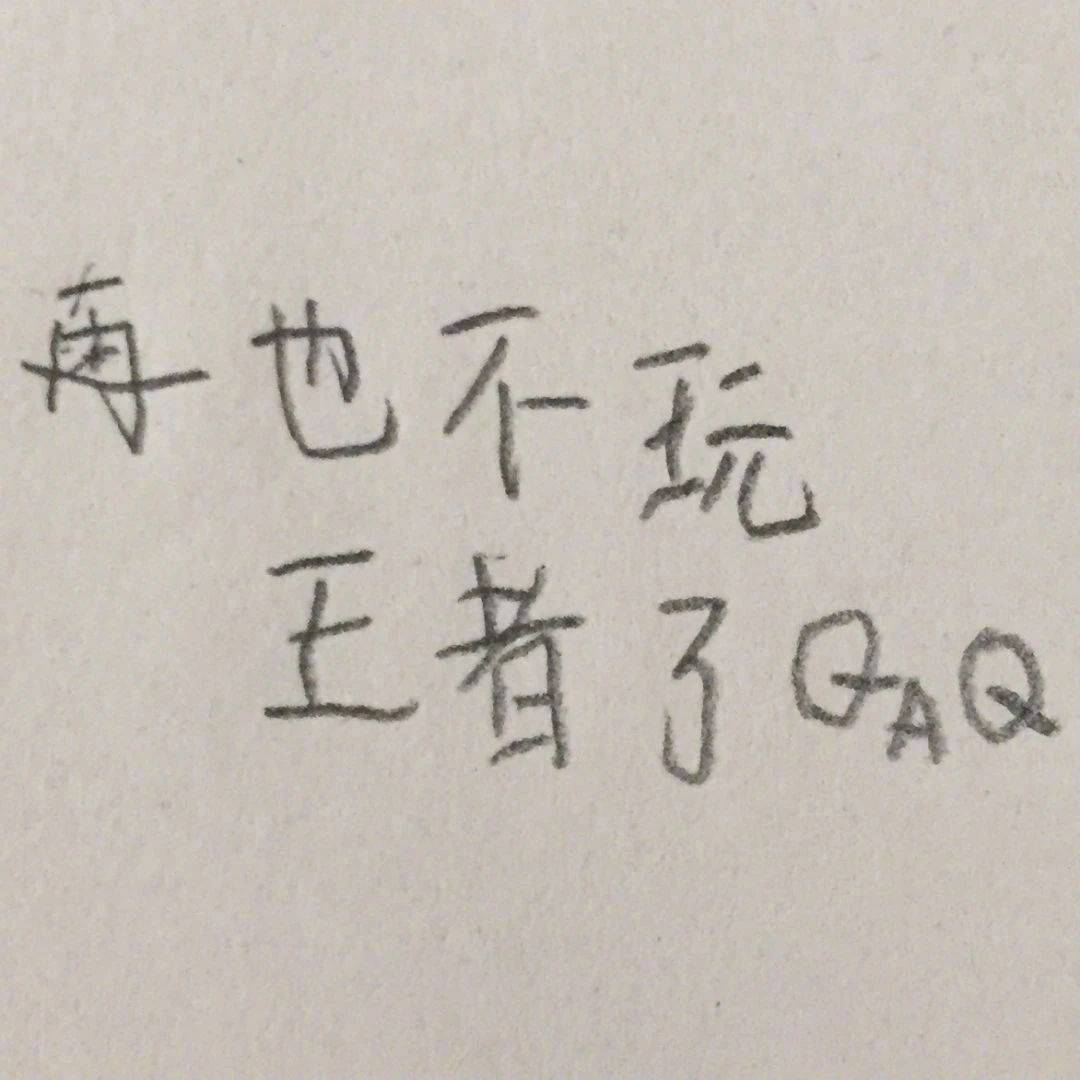 再也不玩
王者了QAQ